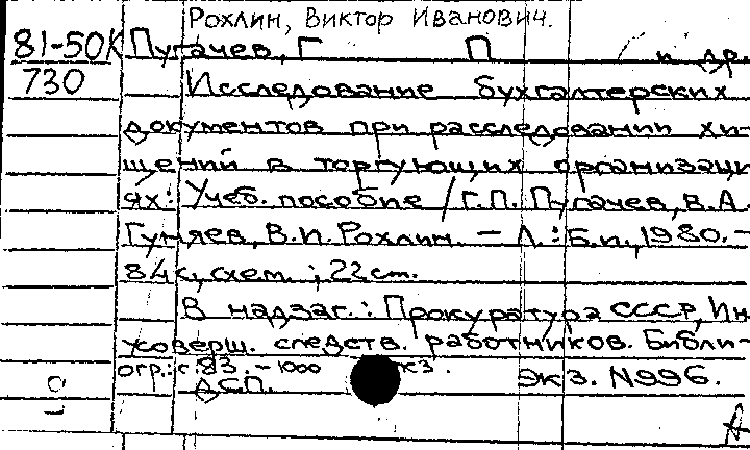 Рохлин, Виктор Иванович.
81-50К Пугачев, Г П и др.
730 Исследование бухгалтерских
документов при расследовании хи-
щений в торгующих организаци
ях: Учеб. пособие / Г.П. Пугачев, В.А.
Гуняев, В.И. Рохлин. — Л.: Б.и., 1980. —
84с., схем.; 22 см.
В надзаг.: Прокуратура СССР, Ин
усоверш. следств. работников. Библи-
огр.: с. 83. — 1000 экз.
ДСП. Экз. N996.
А